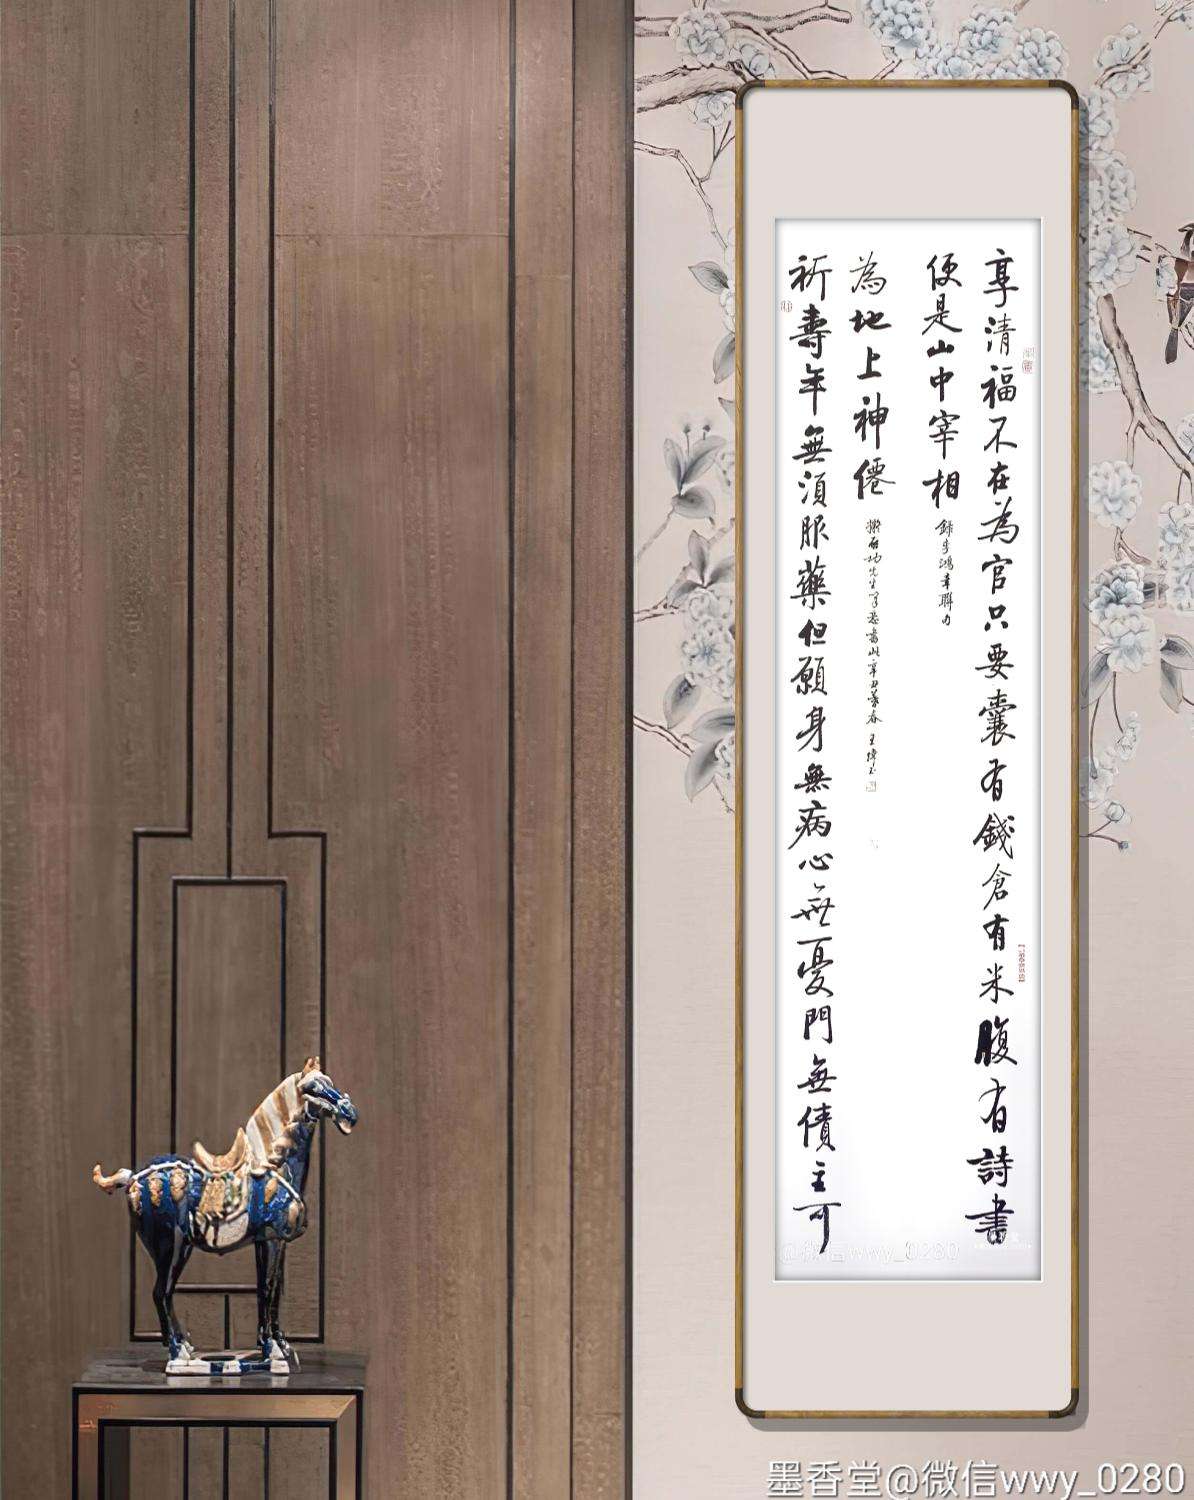 享清福不在為官只要囊有錢倉有米腹有詩書
便是山中宰相
録李鴻章聯句
祈壽年無須服藥但願身無病心無憂門無債主可
為地上神僊
啟功先生筆意書此辛丑暮春 王
@微信wwy_0280
墨香堂@微信wwy_0280